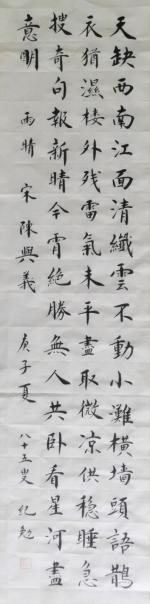 天缺西南江面清纖雲不動小灘橫墙頭語鵲
衣猶濕樓外残雷氣未平盡取微凉供穩睡急
搜奇句報新晴今宵絶勝無人共卧看星河盡
意明
雨晴 宋 陳興義 庚子夏 八十五叟 紀勉